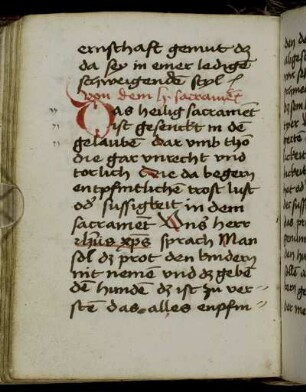 ernschaft gemut dz
da sey in einer ledigē
schweigendē styl
Von dem h. sacramēt
Das heilig sacramēt
ist gesenckt in dē
gelauben dar vmb thō
die gar vnrecht vnd
torlich die da begern
entpfintliche trost lust
od' sussigkeit in dem
sacramēt Vns' herr
ihūs xp̄s sprach Man
sol dz prot den kindern
nit nemē vnd dz gebē
dē hunden dz ist zu ver=
stēn das alles enpfin=